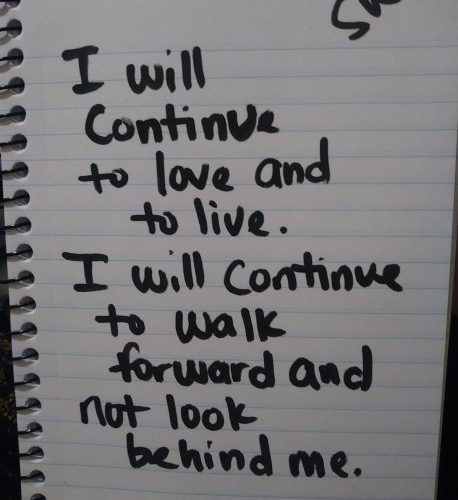 I will
Continue
to love and
to live.
I will continue
to walk
forward and
not look
behind me.